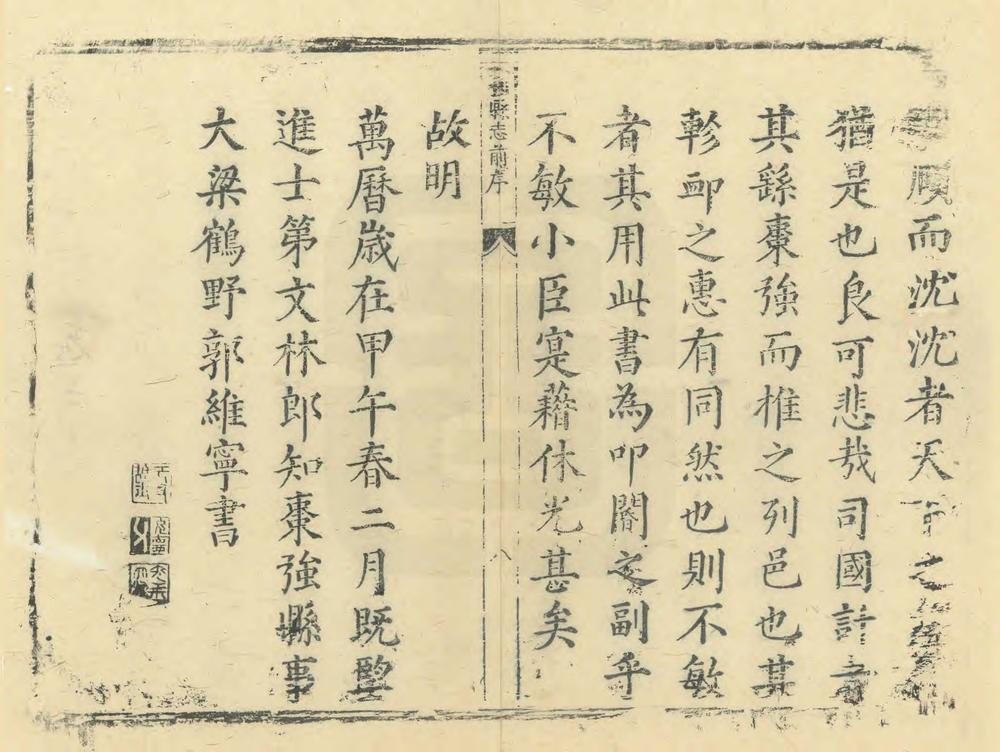 顧而沈沈者天之
猶是也良可悲哉司國計者
其繇棗強而推之列邑也其
軫卹之惠有同然也則不敏
者其用此書為叩閽之副乎
不敏小臣寔藉休光甚矣
縣志前序 八
故明
萬曆歲在甲午春二月既朢
進士第文林郎知棗強縣事
大梁鶴野郭維寧書